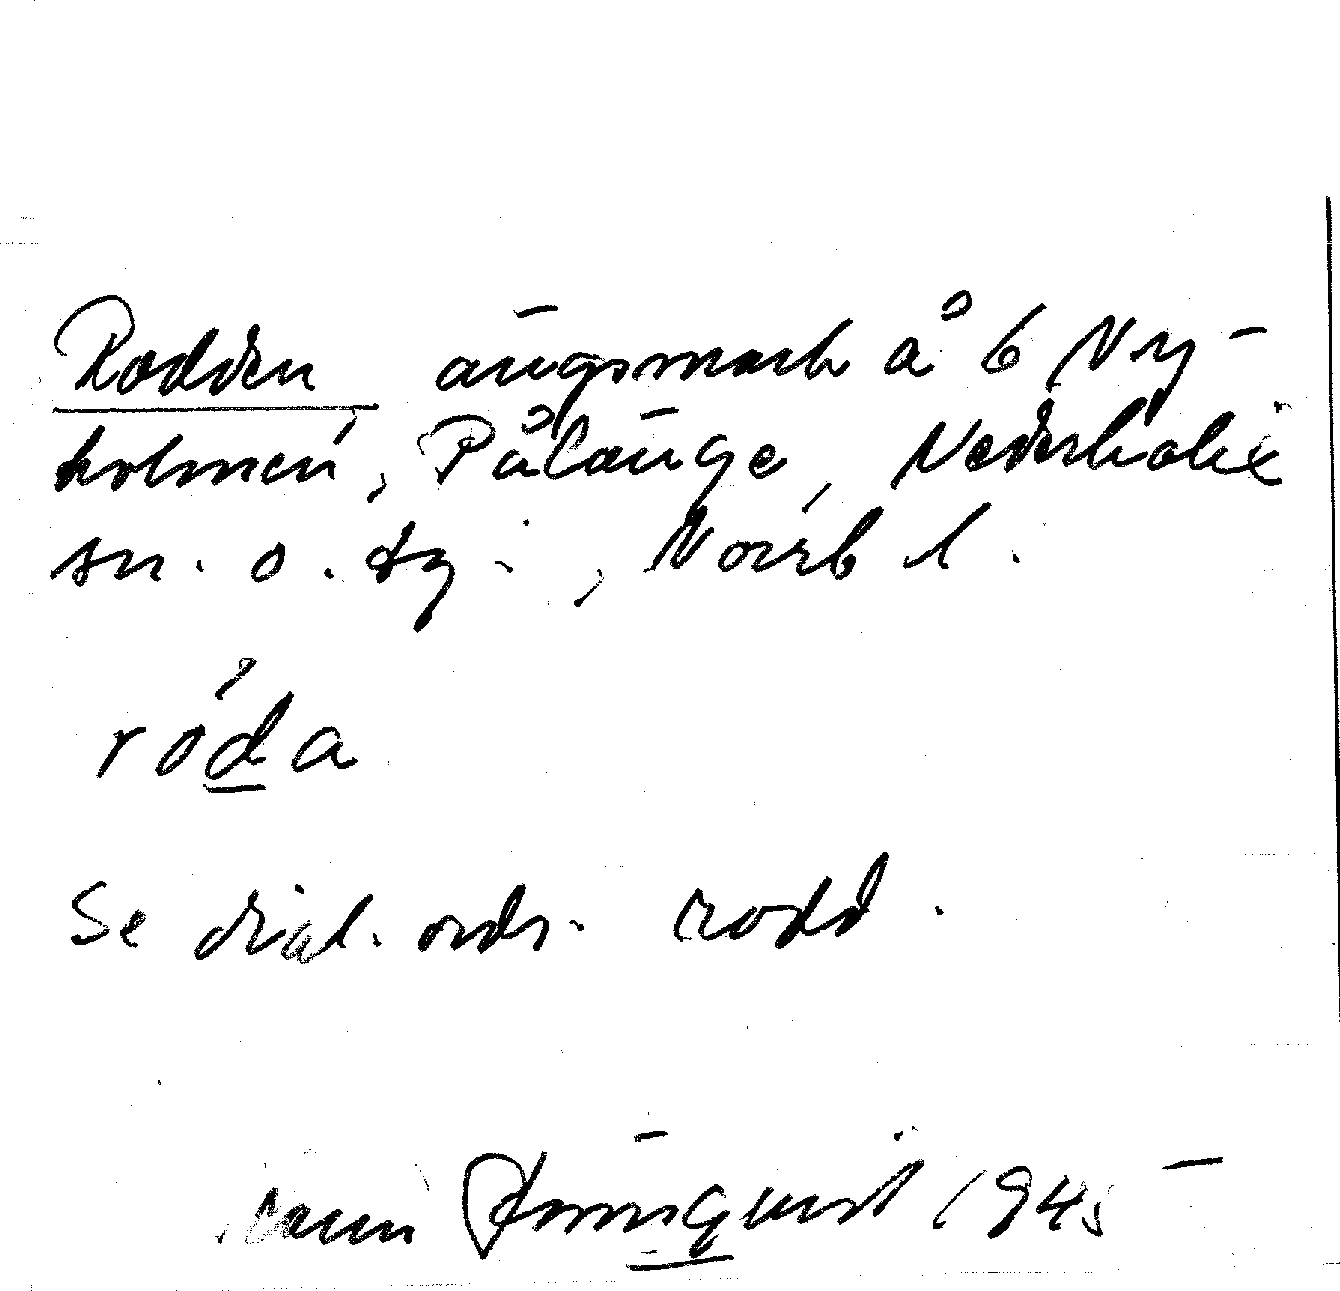 Rodden, ängsmark å 6 Ny-
holmen, Pålänge, Nederkalix
sn. o. tg., Norrb l.
róda
Se dial. ordr. rodd.
1945